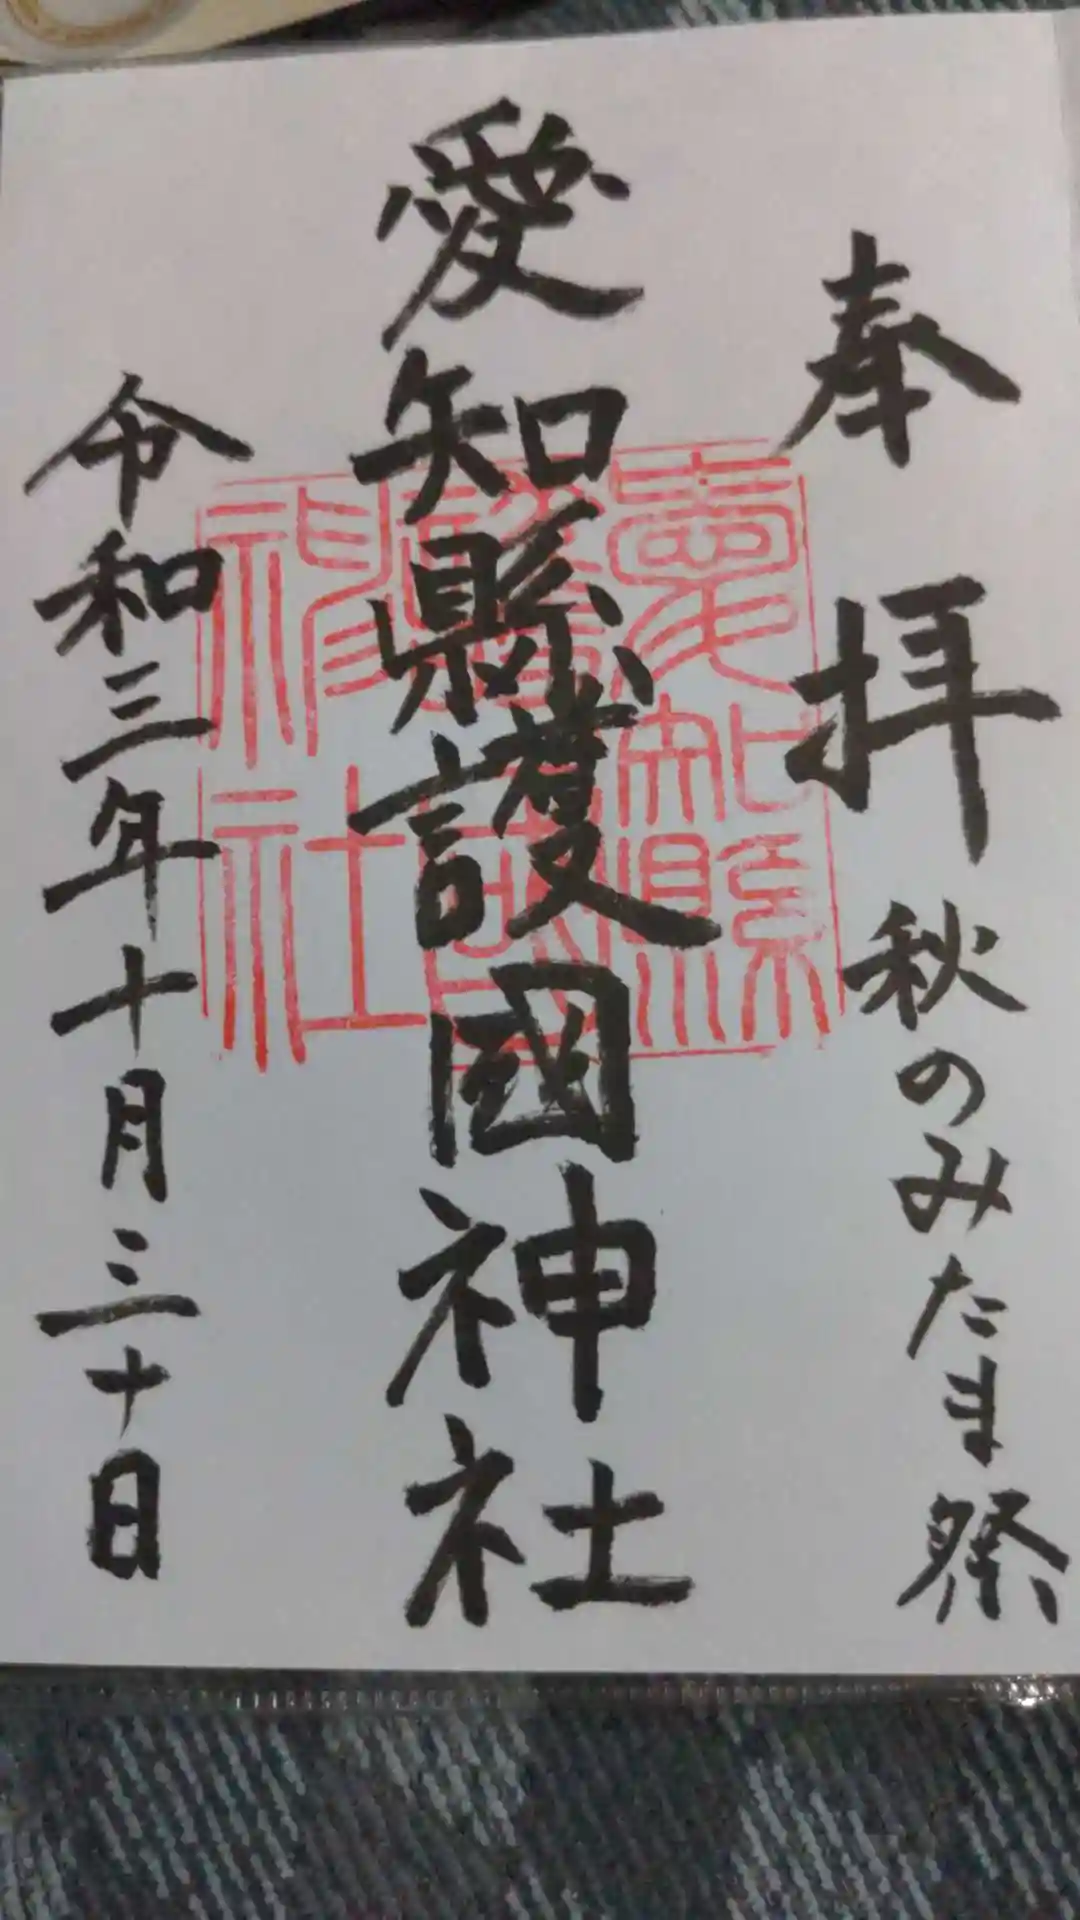 奉拝 秋のみたま祭
愛知縣護國神社
令和三年十月三十日
愛知縣
護國
神社